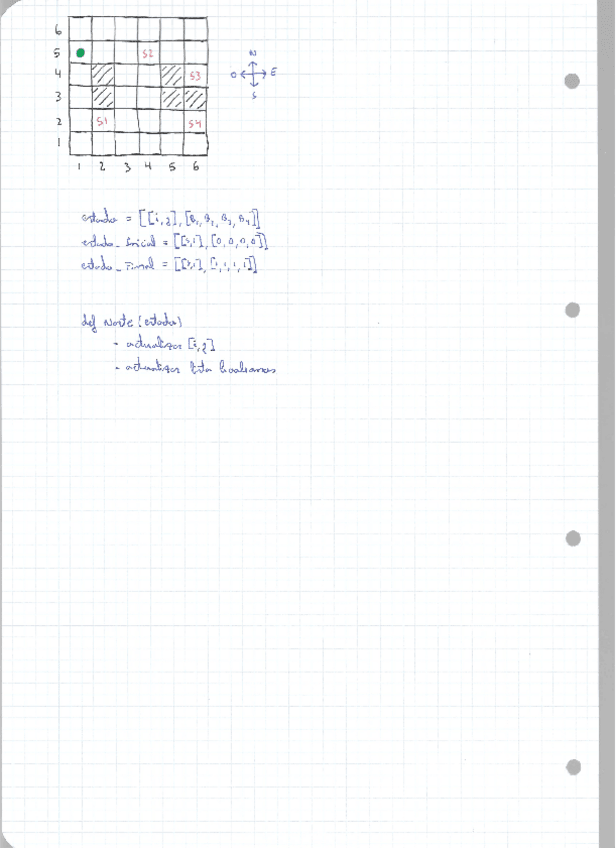 6
5 S2
4 S3
3
2 S1 S4
1
1 2 3 4 5 6
N
O E
S
estado = [[i,j],[B1,B2,B3,B4]]
estado_Inicial = [[5,1],[0,0,0,0]]
estado_Final = [[5,1],[1,1,1,1]]
def Norte (estado)
- actualizar [i,j]
- actualizar lista booleanos